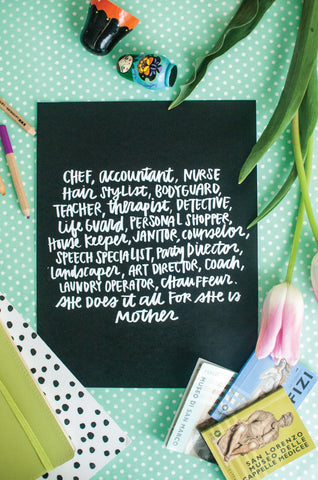 CHEF, accountant, NURSE
Hair Stylist, BODYGUARD,
TEACHER, therapist, DETECTIVE,
Life Guard, PERSONAL SHOPPER,
House Keeper, JANITOR, counselor,
SPEECH SPECIALIST, Party Director,
landscaper, ART DIRECTOR, Coach,
LAUNDRY OPERATOR, Chauffeur.
SHE DOES it ALL FOR SHE IS
MOTHER
MUSEO DI SAN MARCO
FIZI
SAN LORENZO
MUSEO DELLE
CAPPELLE MEDICEE